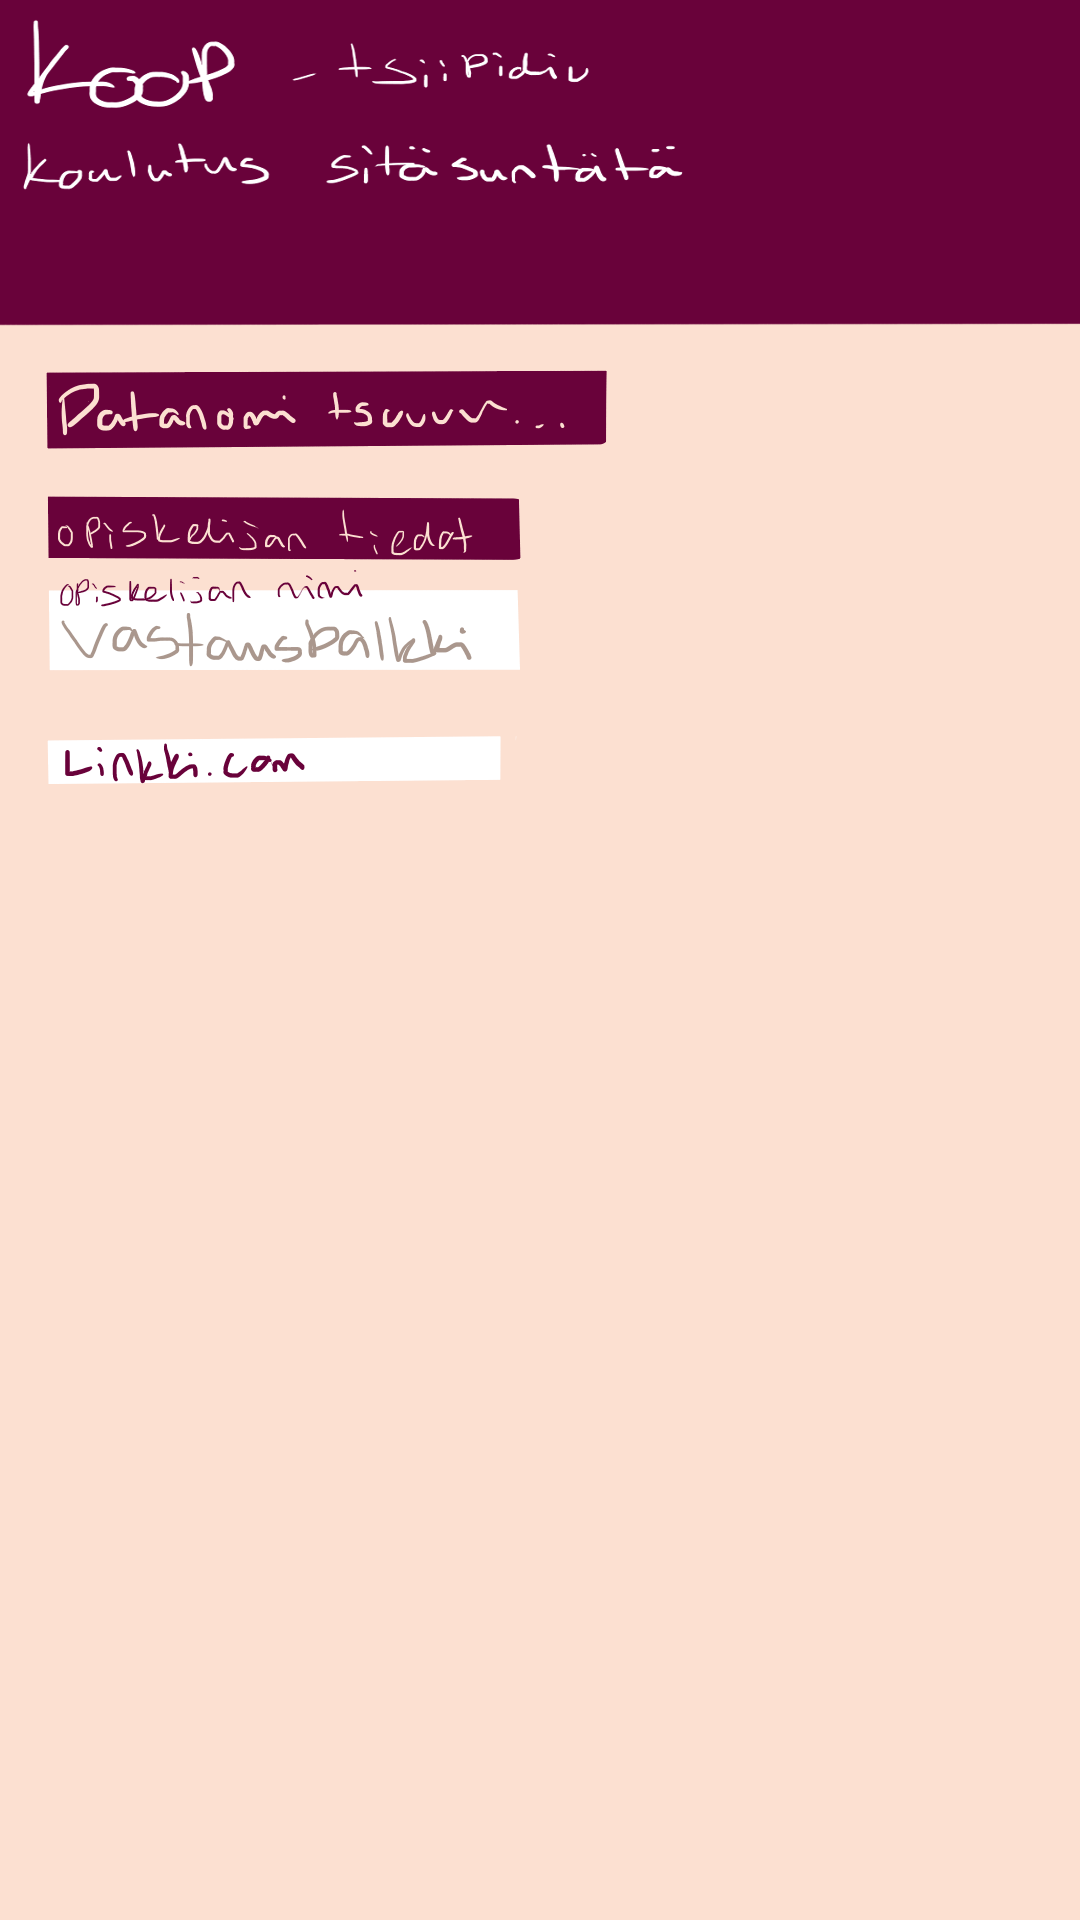 Koop - tsiipidiu
koulutus sitäsuntätä
Datanomi tsuuur...
opiskelijan tiedot
opiskelijan nimi
Vastausbalkki
Linkki.com